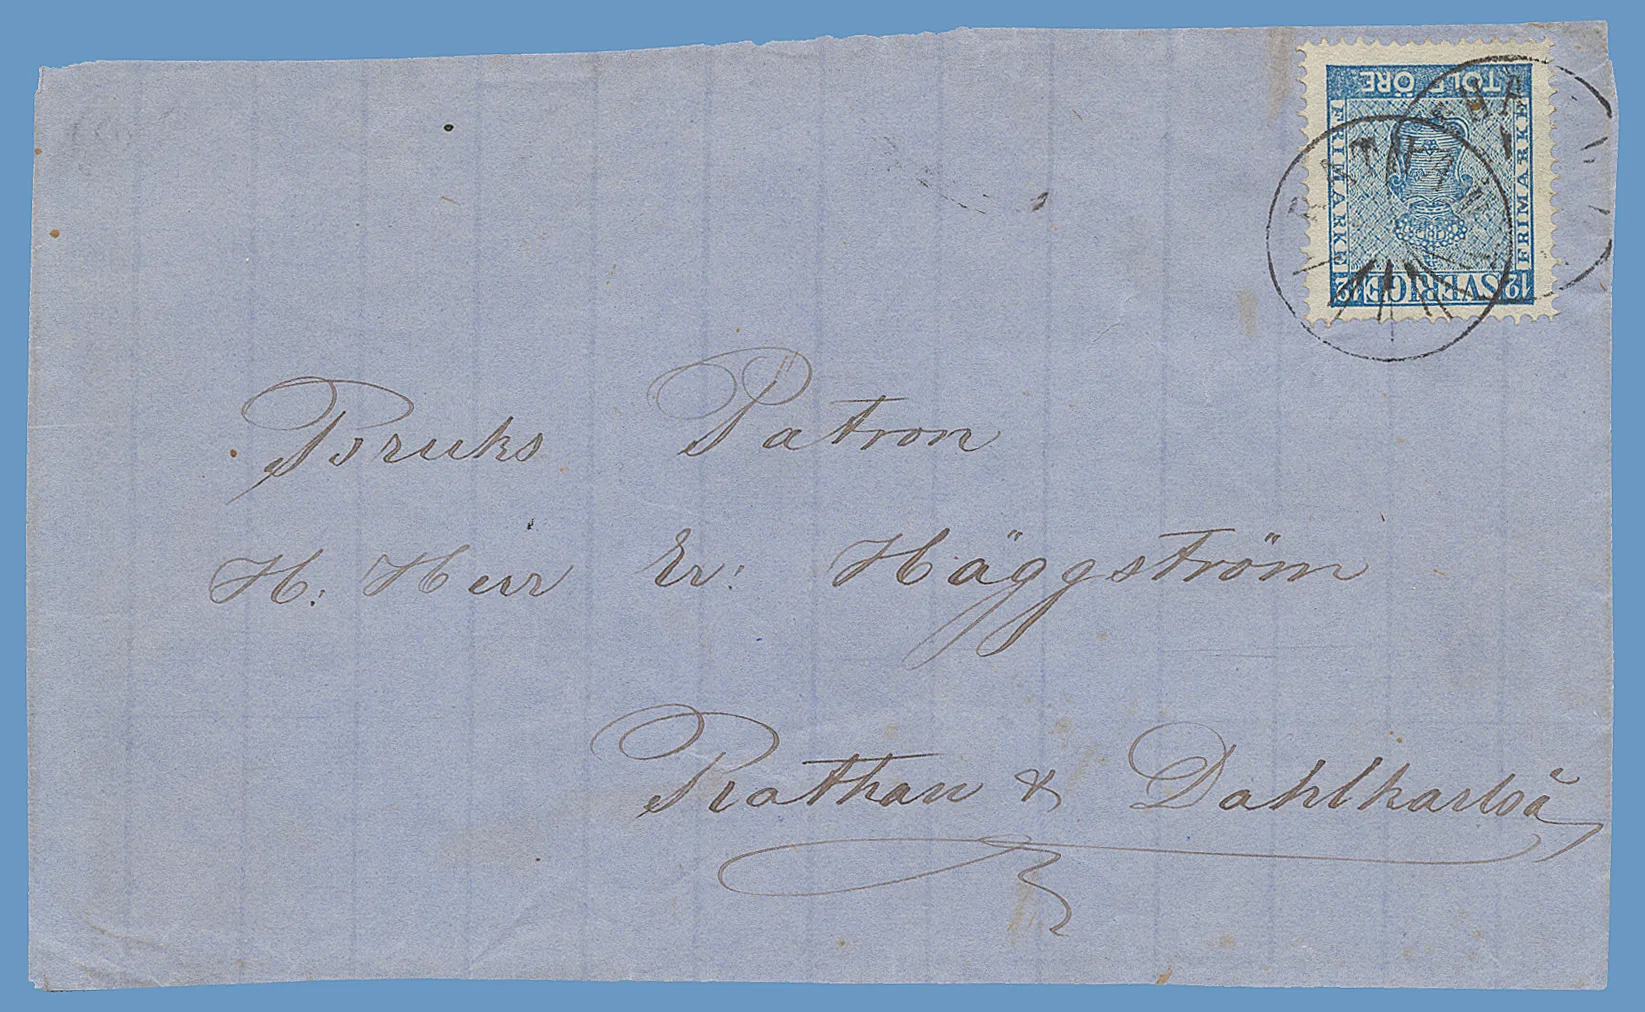 TOLF ÖRE.
FRIMÄRKE
FRIMÄRKE
12 SVERIGE 12
RATAN
Bruks Patron
H. Herr Er: Häggström
Rathan & Dahlkarlså